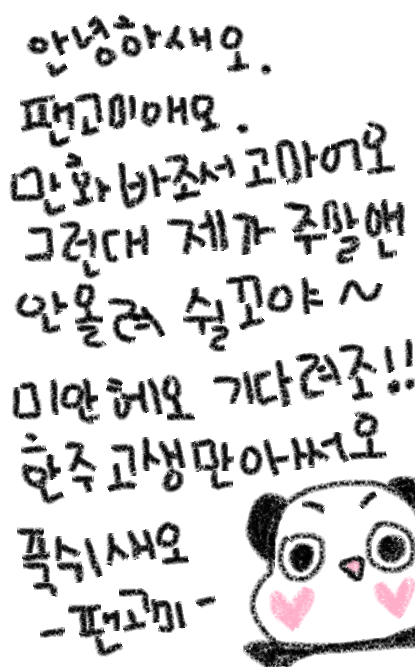 안녕하새오.
팬고미애오.
만화 바조서 고마어오
그런대 제가 주말앤
안올려 쉴꼬야~
미안헤오 기다려조!!
한주 고생 만아써오
푹쉬새오
-팬고미-